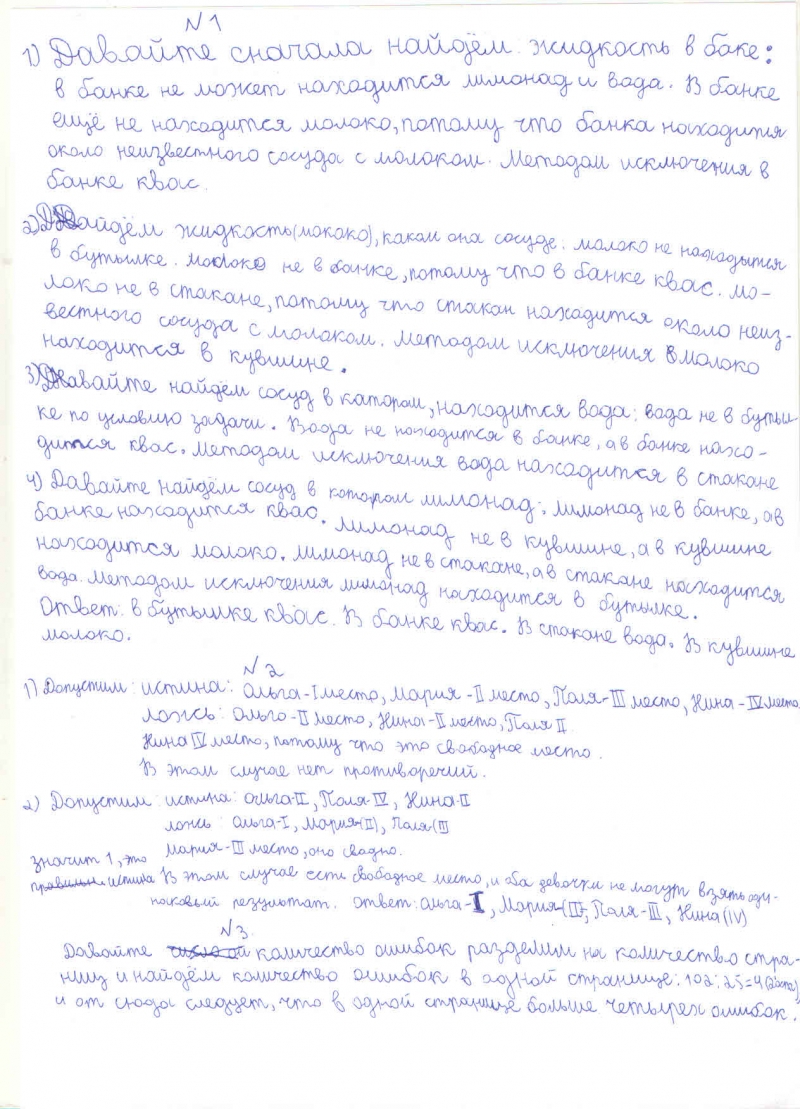 №1
1) Давайте сначала найдём жидкость в баке:
в банке не может находится лимонад и вода. В банке
ещё не находится молоко, потому что банка находится
около неизвестного сосуда с молоком. Методом исключения в
банке квас.
2) Найдём жидкость (мококо), каком она сосуде: молоко не находится
в бутылке. молоко не в банке, потому что в банке квас. мо-
локо не в стакане, потому что стакан находится около неиз-
вестного сосуда с молоком. методом исключения молоко
находится в кувшине.
3) Давайте найдём сосуд в катором, находится вода: вода не в бутыл-
ке по условию задачи. Вода не находится в банке, а в банке нахо-
дится квас. методом исключения вода находится в стакане
4) Давайте найдём сосуд в котором лимонад: лимонад не в банке, а в
банке находится квас. лимонад не в кувшине, а в кувшине
находится молоко. лимонад не в стакане, а в стакане находится
вода. методом исключения лимонад находится в бутылке.
Ответ: в бутылке квас. В банке квас. В стакане вода. В кувшине
молоко.
№2
1) Допустим: истина: Ольга-I место, Мария-II место, Поля-III место, Нина-IV место
ложь: Ольга-II место, Нина-II место, Поля II.
Нина IV место, потому что это свободное место.
В этом случае нет противоречий.
2) Допустим: истина: Ольга-II, Поля-IV, Нина-II
ложь: Ольга-I, Мария(II), Поля(III
Мария-III место, оно
значит 1, это
истина В этом случае есть свободное место, и оба девочки не могут взять оди-
наковый результат. Ответ: Ольга-I, Мария-(II), Поля-III, Нина(IV)
№3
Давайте количество ошибок разделим на количество стра-
ниц и найдём количество ошибок в одной странице: 102:25=4(2ост)
и от сюда следует, что в одной странице больше четырех ошибок.